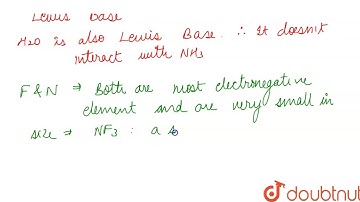 Lewis base
H2O is also Lewis Base. ∴ It doesn't
interact with NH3
F & N ⇒ Both are most electronegative
element and are very small in
size ⇒ NF3 : a s
doubtnut